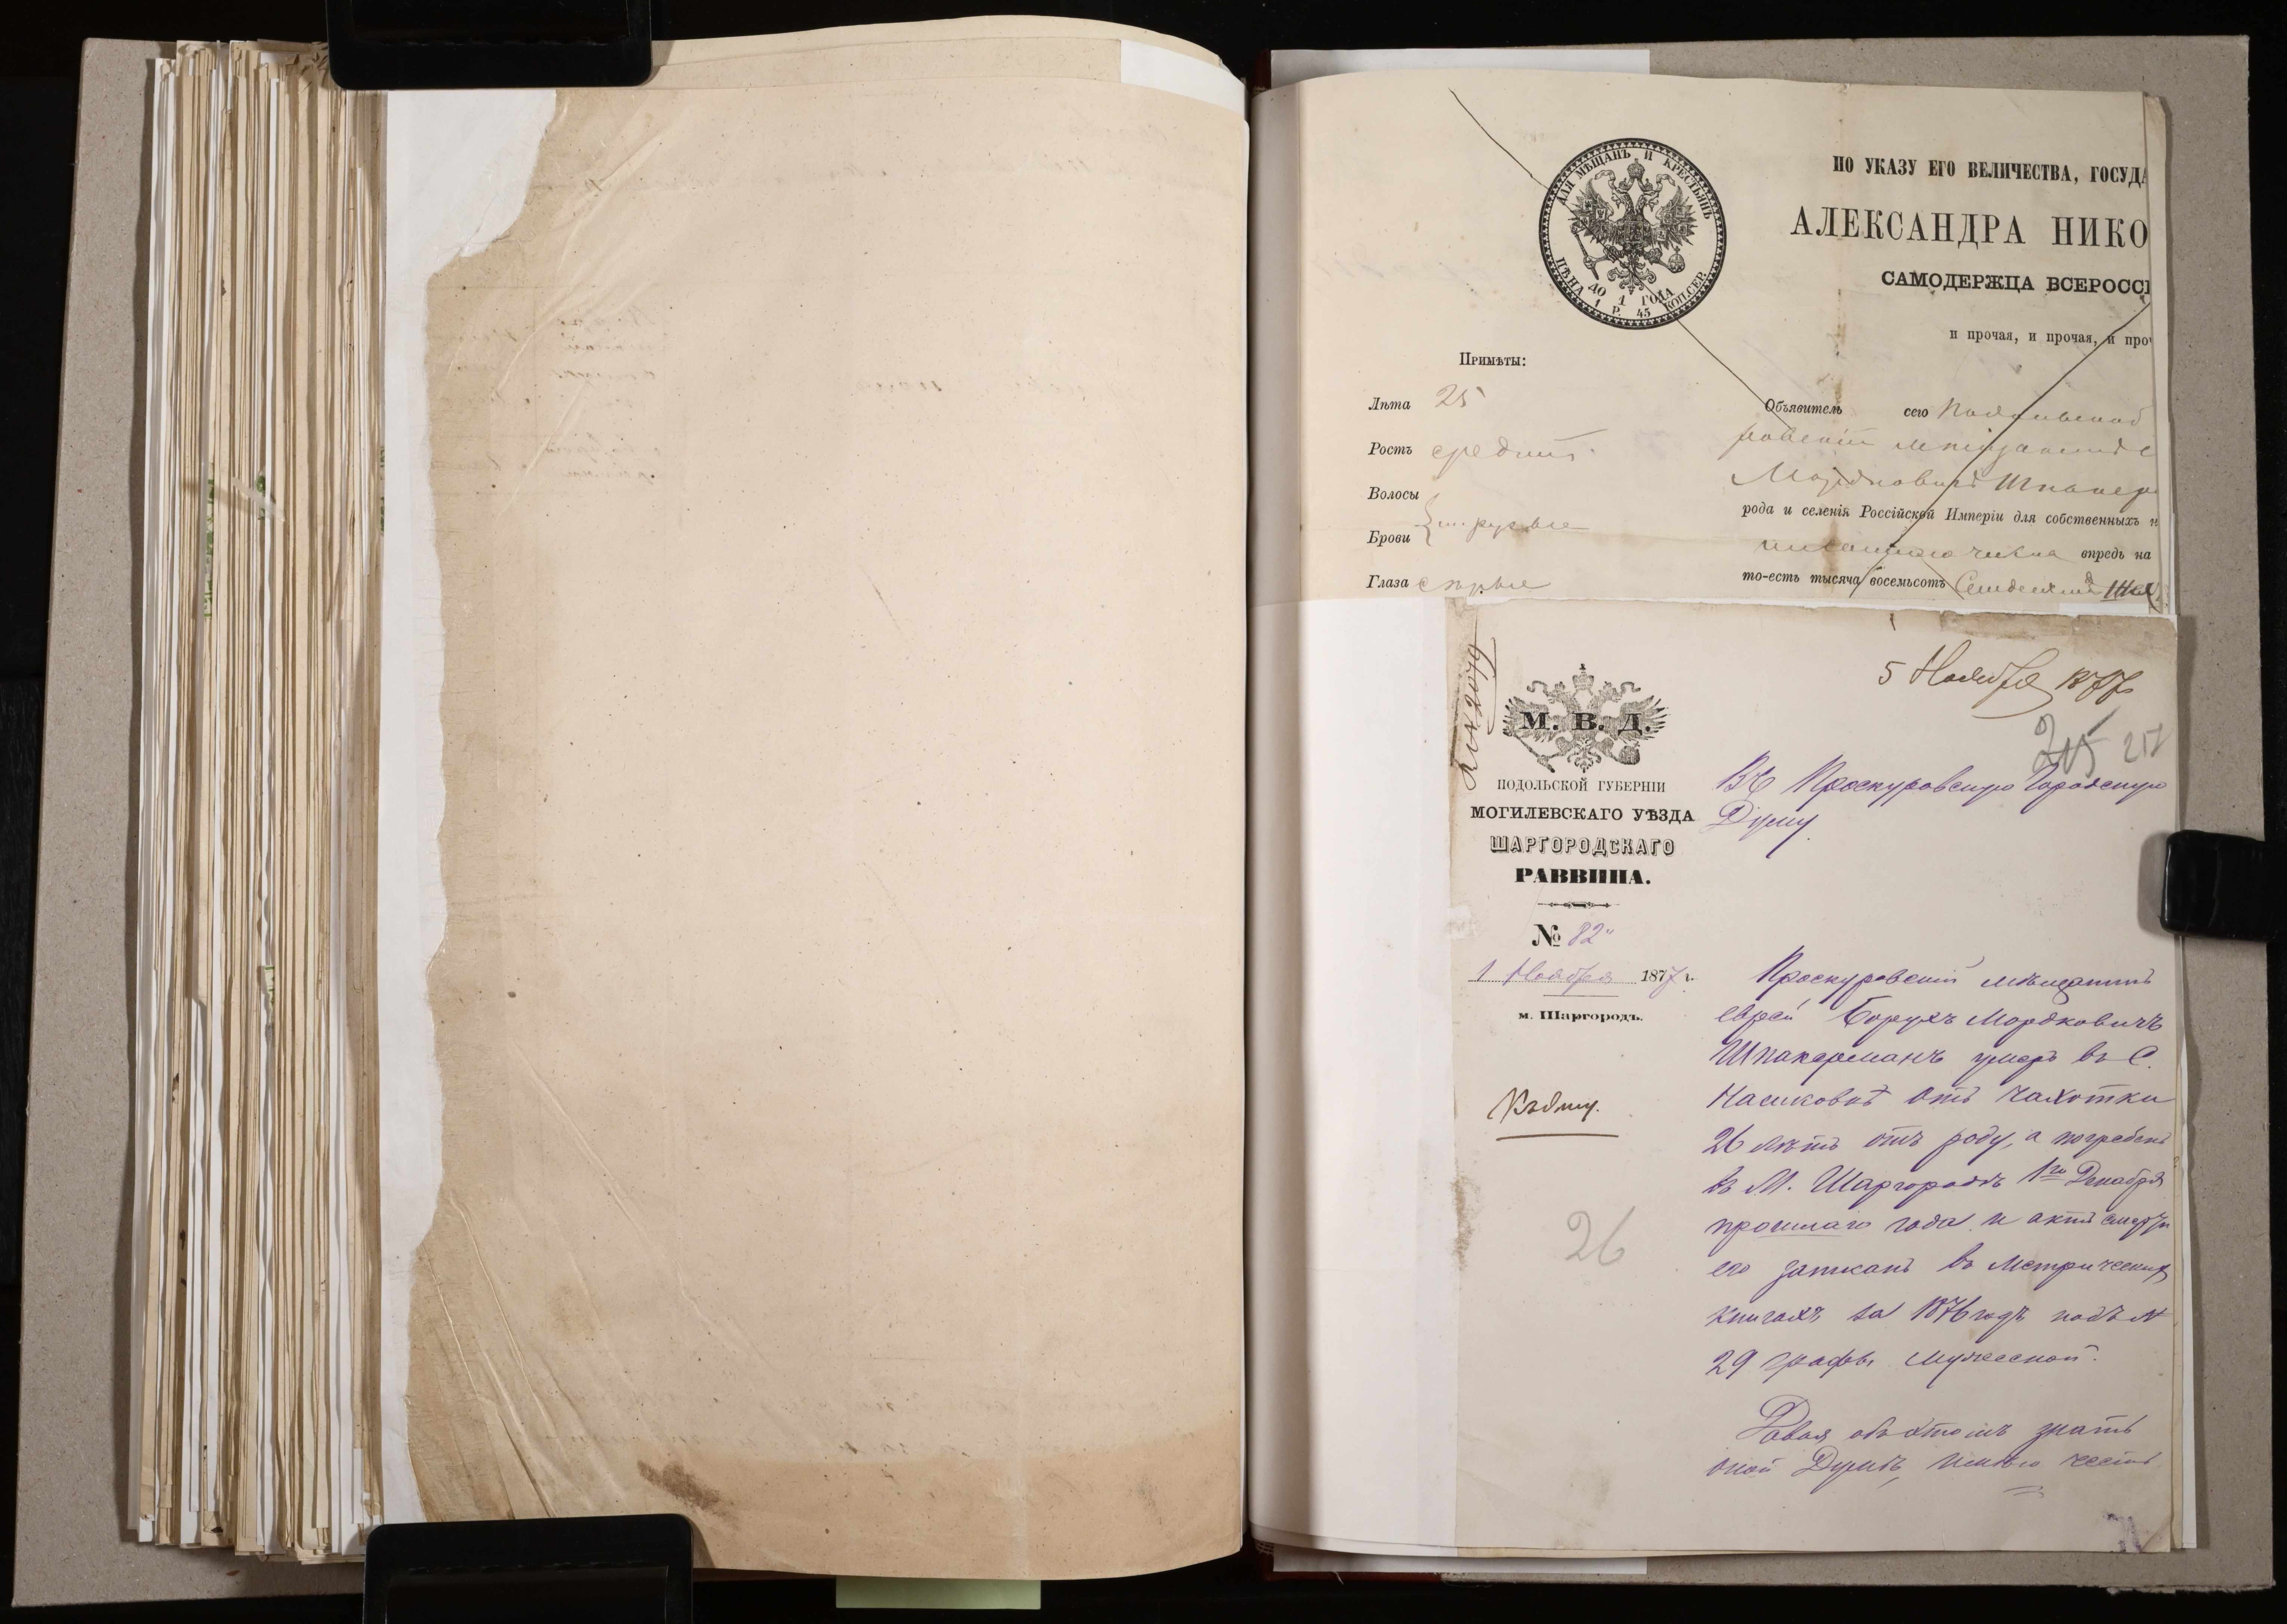 ДЛЯ МѢЩАНЪ И КРЕСТЬЯНЪ
ЦѢНА 1 Р. 45 КОП.СЕР.
ДО 1 ГОДА
ПО УКАЗУ ЕГО ВЕЛИЧЕСТВА, ГОСУДА
АЛЕКСАНДРА НИКО
САМОДЕРЖЦА ВСЕРОССІ
и прочая, и прочая, и проч
Примѣты:
Лѣта 25
Ростъ средній
Волосы
Брови русые
Глаза сѣрые
Объявитель сего
мѣщанинъ
Мордковичъ Шпакер
рода и селенія Россійской Имперіи для собственныхъ н
писаннаго числа впредь на
то-есть тысяча восемьсотъ Семьдесятъ
5 Ноября 1877
215 217
М. В. Д.
ПОДОЛЬСКОЙ ГУБЕРНІИ
МОГИЛЕВСКАГО УѢЗДА
ШАРГОРОДСКАГО
РАВВИНА.
№ 82
1 Ноября 1877 г.
м. Шаргородъ.
Къ дѣлу.
26
Въ Проскуровскую Городскую
Думу.
Проскуровскій мѣщанинъ
еврей Борухъ Мордковичъ
Шпакерманъ умеръ въ С.
Насиковкѣ отъ чахотки
26 лѣтъ отъ роду, а погребенъ
въ М. Шаргородѣ 1го Декабря
прошлаго года и актъ смерти
его записанъ въ Метрическихъ
книгахъ за 1876 годъ подъ №
29 графы мужеской.
Давая объ этомъ знать
оной Думѣ, имѣю честь